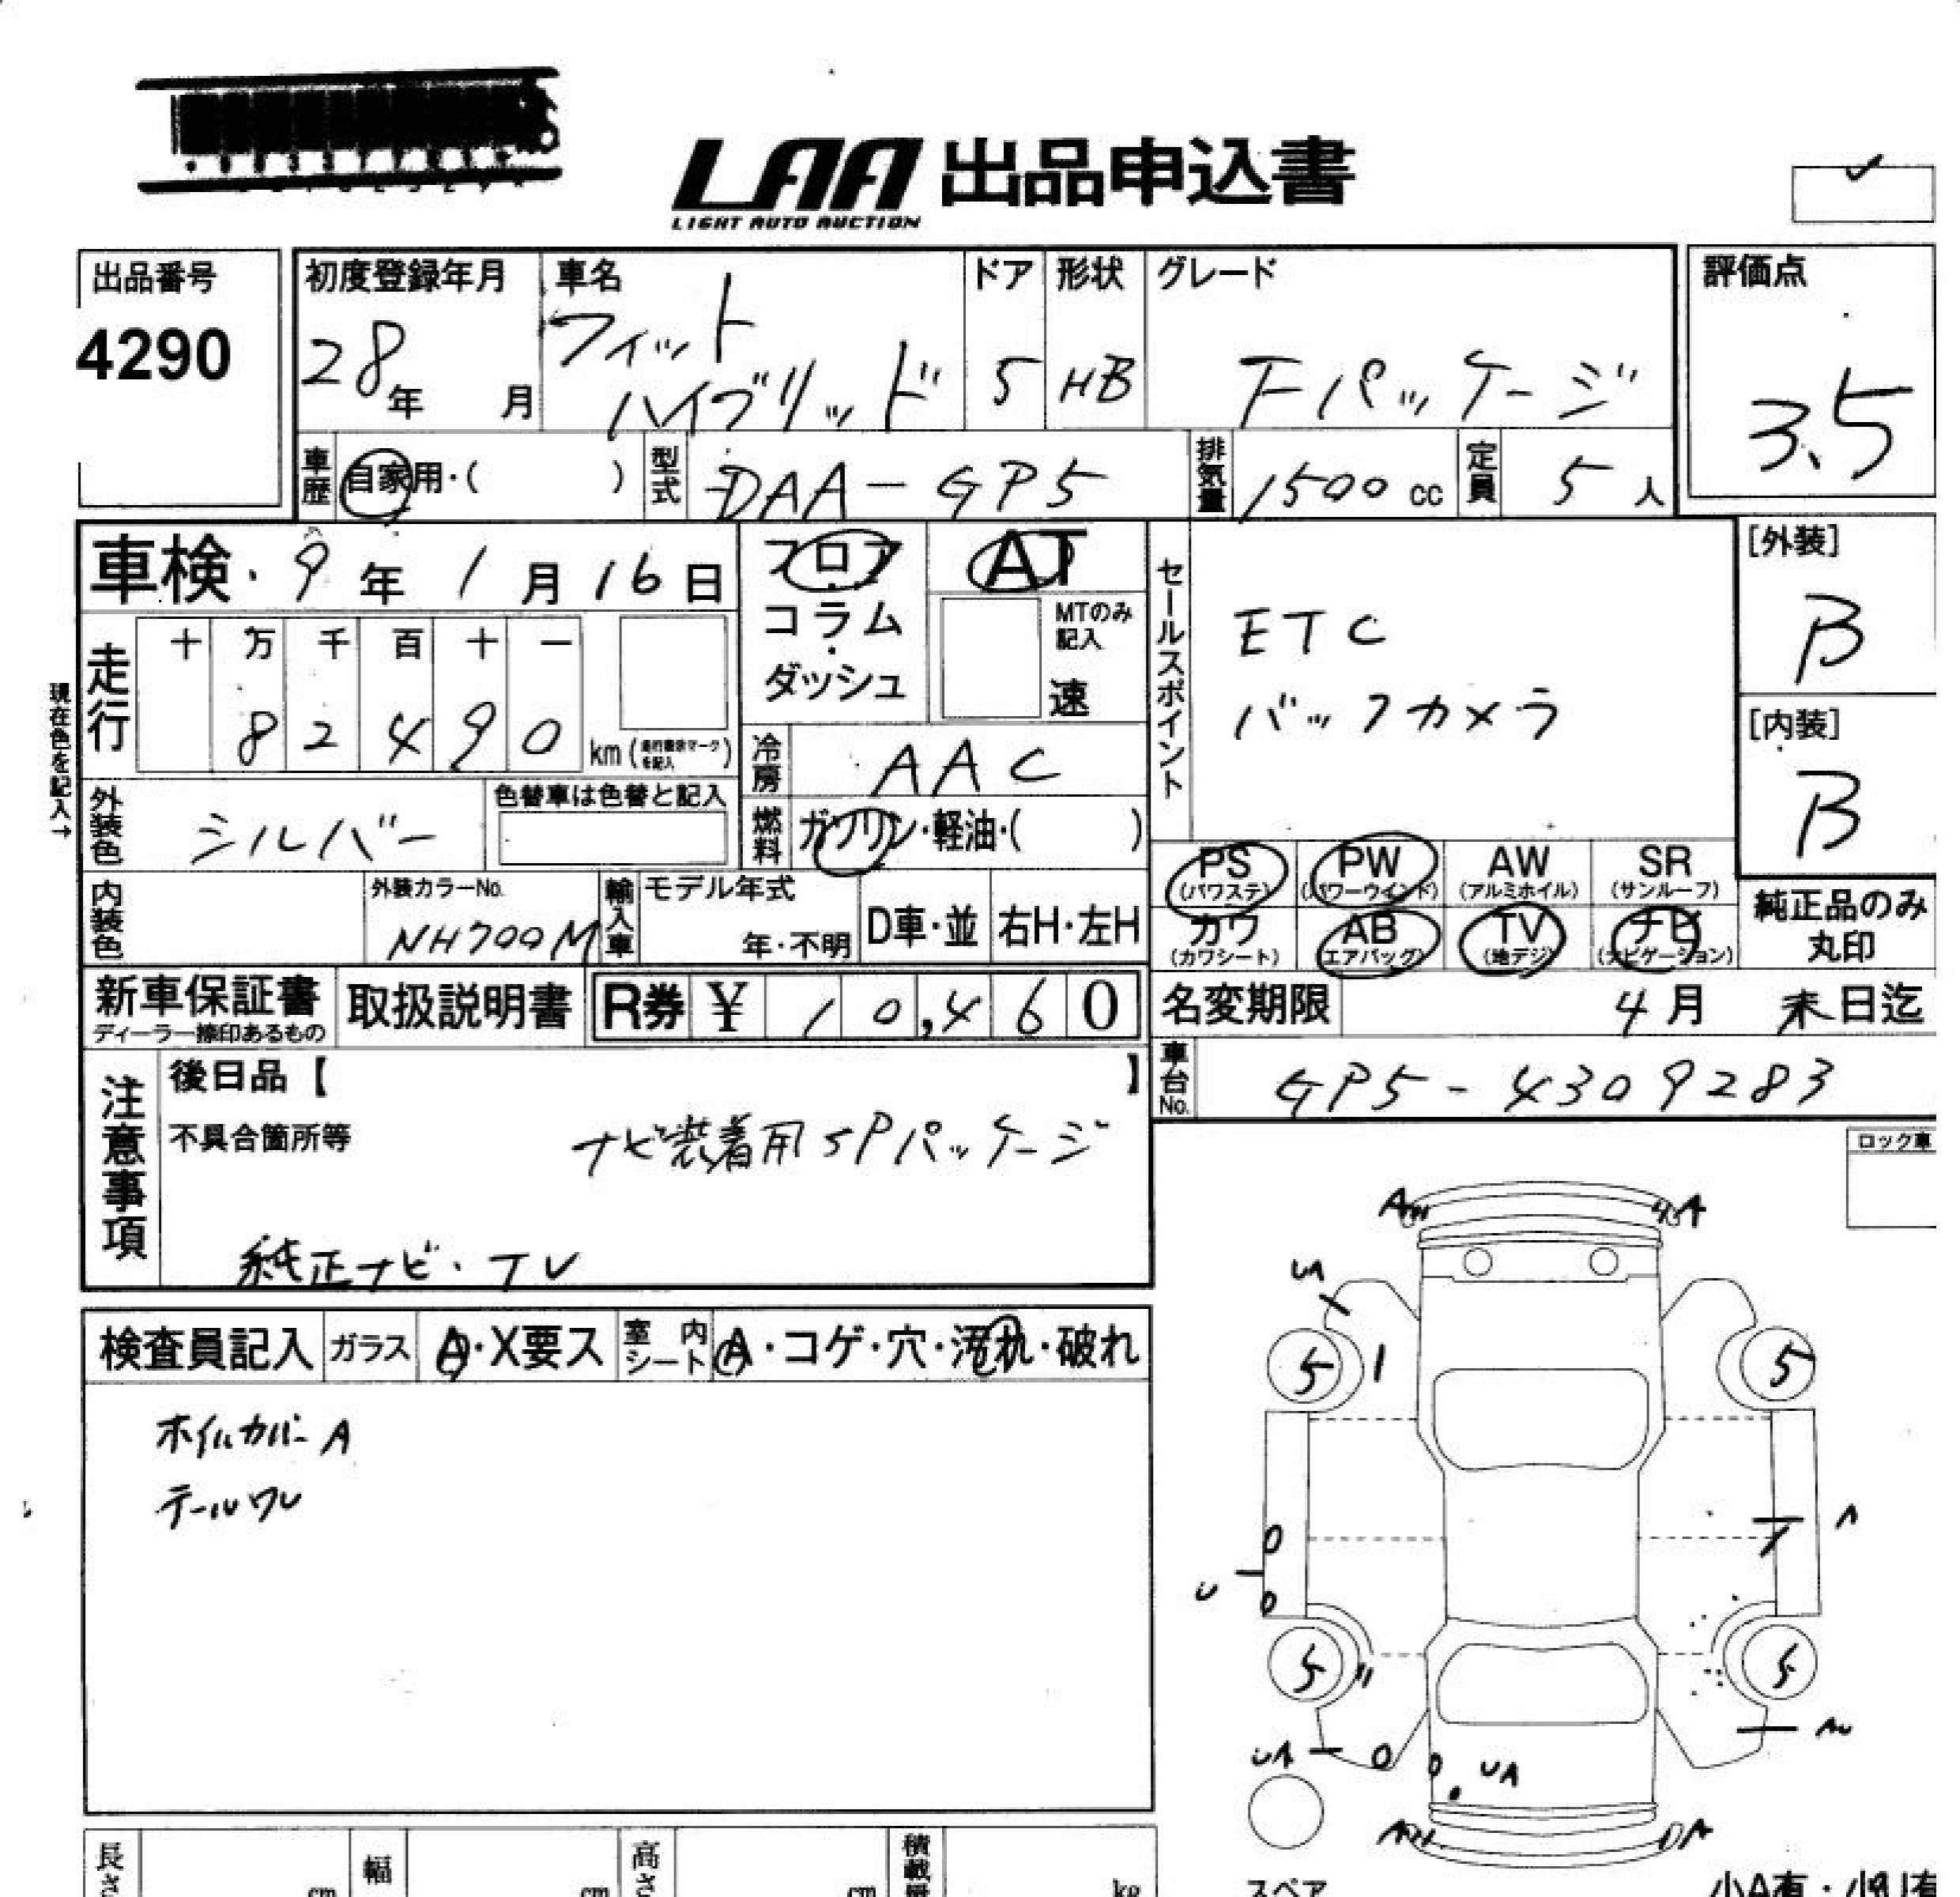 LAA 出品申込書
LIGHT AUTO AUCTION
出品番号
4290
初度登録年月
28年 月
車名
フィット
ハイブリッド
ドア
5
形状
HB
グレード
Fパッケージ
評価点
3.5
車歴
自家用・( )
型式
DAA-GP5
排気量
1500 cc
定員
5 人
車検・9年1月16日
フロア
コラム
ダッシュ
AT
MTのみ
記入
速
セールスポイント
ETC
バックカメラ
[外装]
B
[内装]
B
現在色を記入→
走行
十 万 千 百 十 一
8 2 4 9 0 km
冷房
AAC
外装色
シルバー
色替車は色替と記入
燃料
ガソリン・軽油・( )
内装色
外装カラーNo.
NH700M
輸入車
モデル年式
年・不明
D車・並
右H・左H
PS
(パワステ)
PW
(パワーウインド)
AW
(アルミホイル)
SR
(サンルーフ)
カワ
(カワシート)
AB
(エアバッグ)
TV
(地デジ)
ナビ
(ナビゲーション)
純正品のみ
丸印
新車保証書
ディーラー捺印あるもの
取扱説明書
R券 ¥ 10,460
名変期限
4月 末日迄
車台No.
GP5-4309283
注意事項
後日品【 】
不具合箇所等
ナビ装着用SPパッケージ
純正ナビ・TV
ロック車
検査員記入
ガラス
A・X要ス
室内
シート
A・コゲ・穴・汚れ・破れ
ホイルカバーA
テールワレ
A
A
UA
5
5
A
U
5
5
UA
UA
スペア
長さ
cm
幅
cm
高さ
cm
積載量
kg